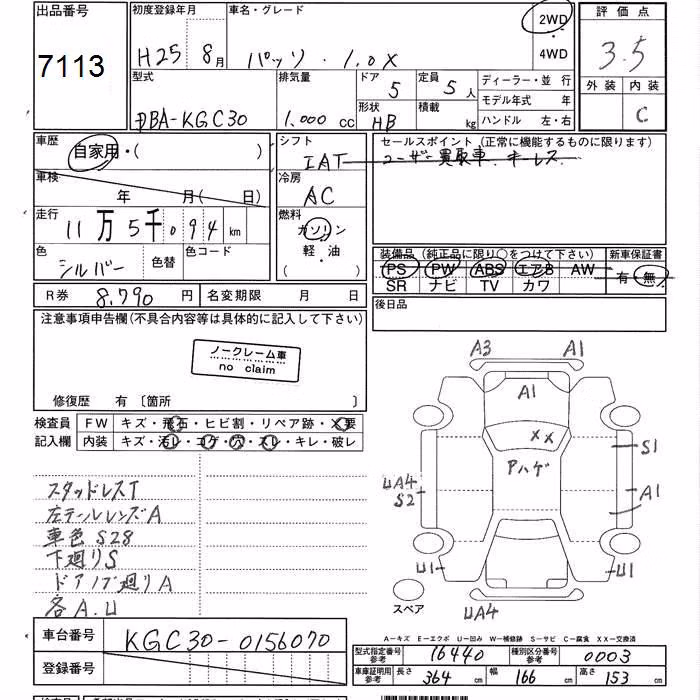 出品番号 初度登録年月 車名・グレード 2WD 評価点
7113 H25 8月 パッソ・1.0X 4WD 3.5
型式 排気量 ドア 5 定員 5人 ディーラー・並行 外装 内装
DBA-KGC30 1.000cc 形状 HB 積載 kg モデル年式 年 C
ハンドル 左・右
車歴 自家用・( ) シフト IAT セールスポイント(正常に機能するものに限ります)
ユーザー買取車.キーレス
車検 年 月( 日) 冷房 AC
走行 11万5千094km 燃料 ガソリン・軽・油 ( )
色 シルバー 色替 色コード
装備品(純正品に限り○をつけて下さい) 新車保証書
PS PW ABS エアB AW 有・無
SR ナビ TV カワ
R券 8.790円 名変期限 月 日 後日品
注意事項申告欄(不具合内容等は具体的に記入して下さい)
ノークレーム車
no claim
修復歴 有〔箇所 〕
検査員 FW キズ・飛石・ヒビ割・リペア跡・X要
記入欄 内装 キズ・汚レ・コゲ・穴・スレ・キレ・破レ
A3 A1
A1
XX
S1
Pハゲ
UA4
S2
A1
U1 U1
UA4
スペア
スタッドレスT
左テールレンズA
車色 S28
下廻りS
ドアノブ廻りA
各A.U
A-キズ E-エクボ U-凹み W-補修跡 S-サビ C-腐食 XX-交換済
車台番号 KGC30-0156070
型式指定番号 参考 16440 種別区分番号 参考 0003
登録番号
車庫証明用 参考 長さ 364cm 幅 166cm 高さ 153cm